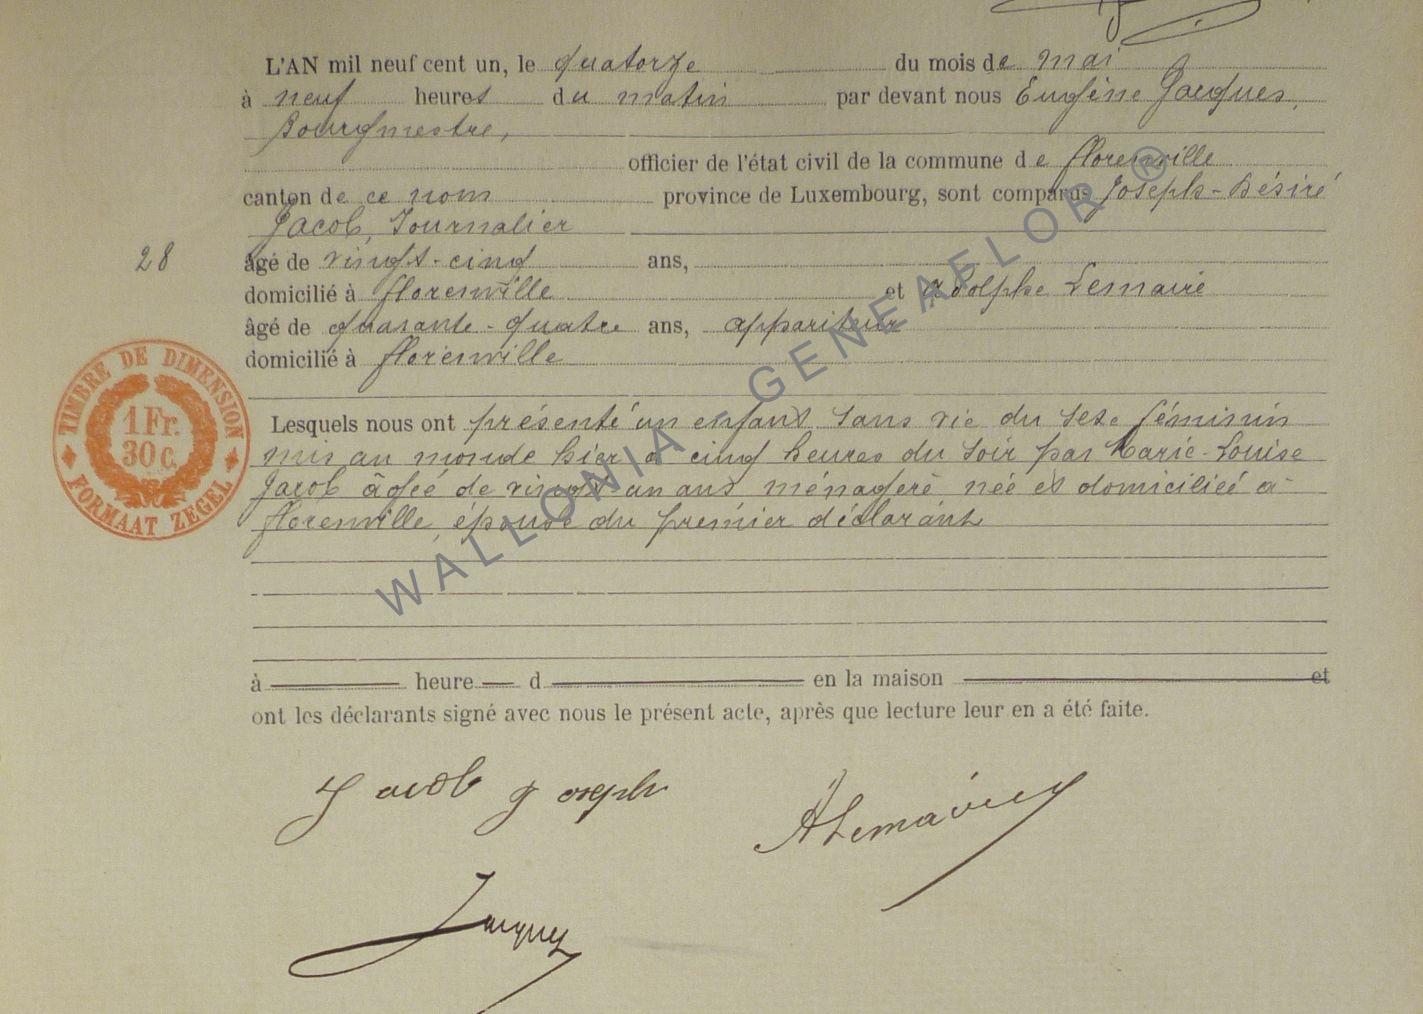 L'AN mil neuf cent un, le quatorze du mois de mai
à neuf heures du matin par devant nous Eugène Jacques,
Bourgmestre,
officier de l'état civil de la commune de florenville
canton de ce nom province de Luxembourg, sont comparus Joseph-Désiré
Jacob, Journalier
28
âgé de vingt-cinq ans,
domicilié à florenville et Adolphe Lemaire
âgé de quarante-quatre ans, appariteur
domicilié à florenville
TIMBRE DE DIMENSION
1 Fr.
30 C.
FORMAAT ZEGEL
Lesquels nous ont présenté un enfant sans vie du sexe féminin
mis au monde hier à cinq heures du soir par Marie-Louise
Jacob âgée de vingt-un ans ménagère née et domiciliée à
florenville, épouse du premier déclarant
à heure d en la maison et
ont les déclarants signé avec nous le présent acte, après que lecture leur en a été faite.
Jacob Joseph
ALemaire
Jacques
WALLONIA - GENEAFLOR ®